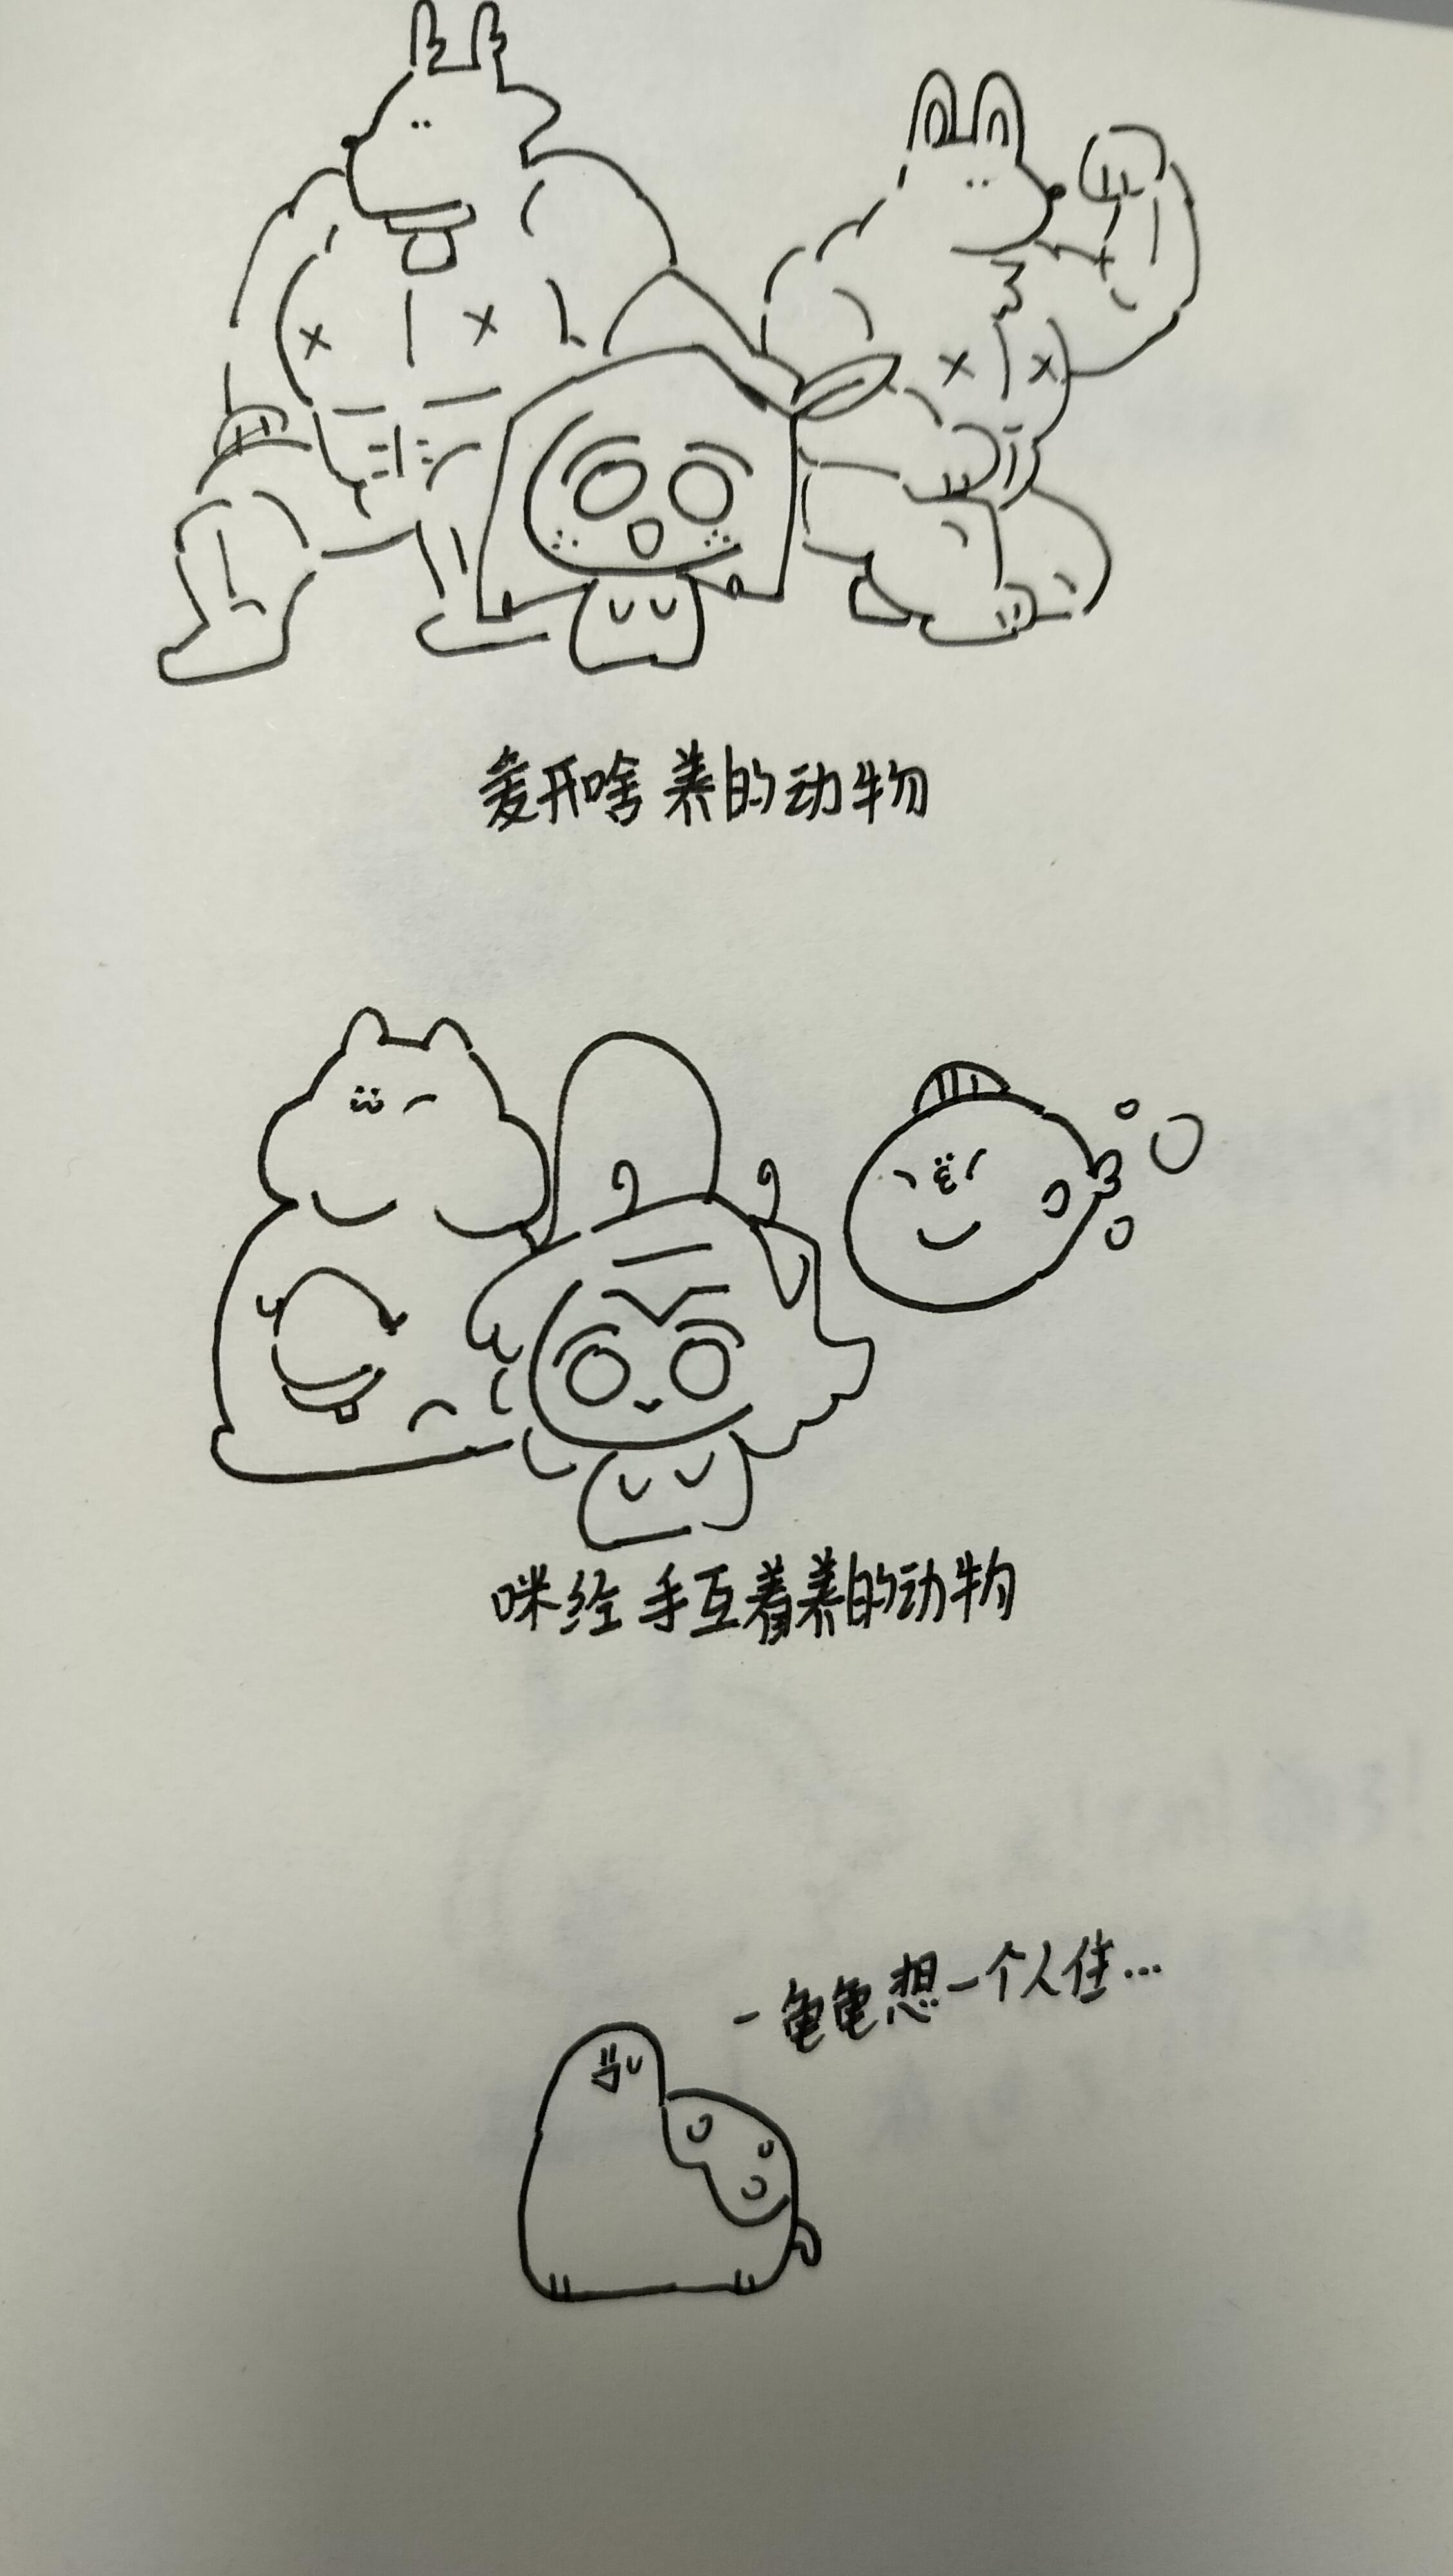 麦开啥养的动物
咪绘手互着养的动物
-龟龟想一个人住...